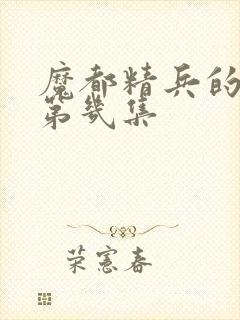 魔都精兵的
第几集
荣宪春